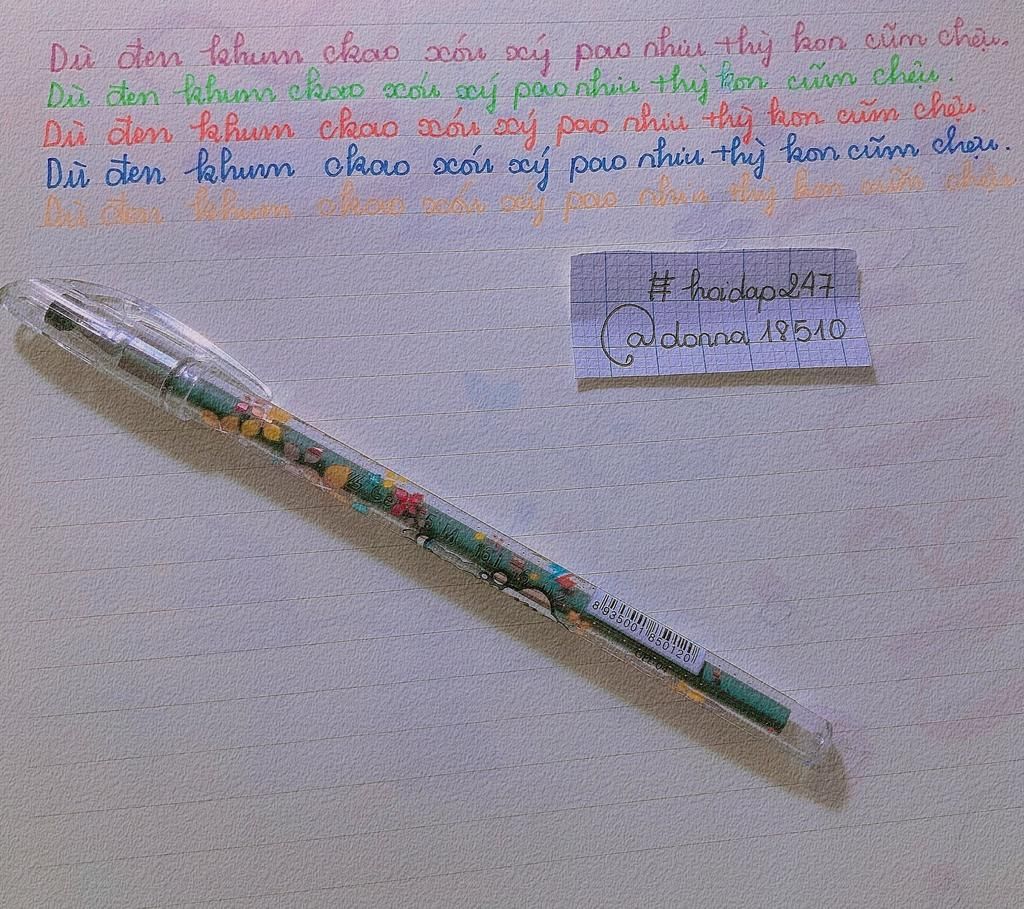 Dù đen khum ckao xóu xý pao nhiu thỳ kon cũm chệu.
Dù đen khum ckao xóu xý pao nhiu thỳ kon cũm chệu.
Dù đen khum ckao xóu xý pao nhiu thỳ kon cũm chệu.
Dù đen khum ckao xóu xý pao nhiu thỳ kon cũm chệu.
Dù đen khum ckao xóu xý pao nhiu thỳ kon cũm chệu
# hoidap247
@donna 18510
8 935001 850120